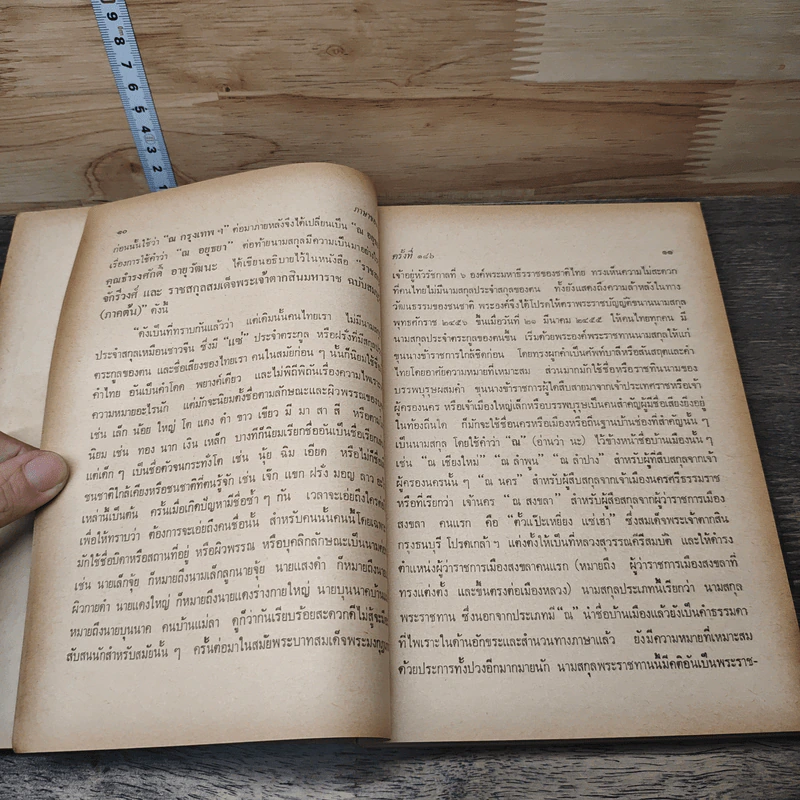 9
8
7
6
5
4
3
2
1
๑๐
ก่อนนั้นใช้ว่า "ณ กรุงเทพ ฯ" ต่อมาภายหลังจึงได้เปลี่ยนเป็น "ณ
เรื่องการใช้คำว่า "ณ อยุธยา" ต่อท้ายนามสกุลมีความเป็นมาอย่างไร
คุณธำรงศักดิ์ อายุวัฒนะ ได้เขียนอธิบายไว้ในหนังสือ
จักรีวงศ์ และ ราชสกุลสมเด็จพระเจ้าตากสินมหาราช
(ภาคต้น)" ดังนี้
"ดังเป็นที่ทราบกันแล้วว่า แต่เดิมนั้นคนไทยเรา ไม่มี
ประจำสกุลเหมือนชาวจีน ซึ่งมี "แซ่" ประจำตระกูล หรือฝรั่งที่มี
ตระกูลของตน และชื่อเสียงของไทยเรา คนในสมัยก่อน ๆ นั้นก็นิยมใช้
คำไทย อันเป็นคำโดด พยางค์เดียว และไม่พิถีพิถันเรื่องความไพเราะ
ความหมายอะไรนัก แต่มักจะนิยมตั้งชื่อตามลักษณะและผิวพรรณของ
เช่น เล็ก น้อย ใหญ่ โต แดง ดำ ขาว เขียว มี มา สา สี หรือ
นิยม เช่น ทอง นาก เงิน เหล็ก บางทีก็นิยมเรียกชื่ออันเป็นชื่อเรียก
แต่เด็ก ๆ เป็นชื่อตัวจนกระทั่งโต เช่น นุ้ย ฉิม เอียด หรือไม่ก็
ชนชาติใกล้เคียงหรือชนชาติที่ตนรู้จัก เช่น เจ๊ก แขก ฝรั่ง มอญ ลาว
เหล่านี้เป็นต้น ครั้นเมื่อเกิดปัญหามีชื่อซ้ำ ๆ กัน เวลาจะเอ่ยถึงใคร
เพื่อให้ทราบว่า ต้องการจะเอ่ยถึงคนชื่อนั้น สำหรับคนนั้นคนนี้โดย
มักใช้ชื่อบิดาหรือสถานที่อยู่ หรือผิวพรรณ หรือบุคลิกลักษณะเป็น
เช่น นายเล็กจุ้ย ก็หมายถึงนามเล็กลูกนายจุ้ย นายแสงดำ ก็หมายถึง
ผิวกายดำ นายแดงใหญ่ ก็หมายถึงนายแดงร่างกายใหญ่ นายบุนนาคบ้าน
หมายถึงนายบุนนาค คนบ้านแม่ลา ดูก็ว่ากันเรียบร้อยสะดวกดีไม่สู้จะ
สับสนนักสำหรับสมัยนั้น ๆ ครั้นต่อมาในสมัยพระบาทสมเด็จพระ
ครั้งที่ ๑๔๖
๑๗
เจ้าอยู่หัวรัชกาลที่ ๖ องค์พระมหาธีรราชของชาติไทย ทรงเห็นความไม่สะดวก
ที่คนไทยไม่มีนามสกุลประจำสกุลของตน ทั้งยังแสดงถึงความล้าหลังในทาง
วัฒนธรรมของชนชาติ พระองค์จึงได้โปรดให้ตราพระราชบัญญัติขนานนามสกุล
พุทธศักราช ๒๔๕๖ ขึ้นเมื่อวันที่ ๒๑ มีนาคม ๒๔๕๕ ให้คนไทยทุกคน มี
นามสกุลประจำตระกูลของตนขึ้น เริ่มด้วยพระองค์พระราชทานนามสกุลให้แก่
ขุนนางข้าราชการใกล้ชิดก่อน โดยทรงผูกคำเป็นศัพท์บาลีหรือสันสกฤตและคำ
ไทยโดยอาศัยความหมายที่เหมาะสม ส่วนมากมักใช้ชื่อหรือราชทินนามของ
บรรพบุรุษผสมคำ ขุนนางข้าราชการผู้ใดสืบสายมาจากเจ้าประเทศราชหรือเจ้า
ผู้ครองนคร หรือเจ้าเมืองใหญ่เล็กหรือบรรพบุรุษเป็นคนสำคัญผู้มีชื่อเสียงยิ่งอยู่
ในท้องถิ่นใด ก็มักจะใช้ชื่อนครหรือเมืองหรือถิ่นฐานบ้านช่องที่สำคัญนั้น ๆ
เป็นนามสกุล โดยใช้คำว่า "ณ" (อ่านว่า นะ) ไว้ข้างหน้าชื่อบ้านเมืองนั้น ๆ
เช่น "ณ เชียงใหม่" "ณ ลำพูน" "ณ ลำปาง" สำหรับผู้ที่สืบสกุลจากเจ้า
ผู้ครองนครนั้น ๆ "ณ นคร" สำหรับผู้สืบสกุลจากเจ้าเมืองนครศรีธรรมราช
หรือที่เรียกว่า เจ้านคร "ณ สงขลา" สำหรับผู้สืบสกุลจากผู้ว่าราชการเมือง
สงขลา คนแรก คือ "ตั้วแป๊ะเหยี่ยง แซ่เฮ่า" ซึ่งสมเด็จพระเจ้าตากสิน
กรุงธนบุรี โปรดเกล้า ฯ แต่งตั้งให้เป็นที่หลวงสุวรรณคีรีสมบัติ และให้ดำรง
ตำแหน่งผู้ว่าราชการเมืองสงขลาคนแรก (หมายถึง ผู้ว่าราชการเมืองสงขลาที่
ทรงแต่งตั้ง และขึ้นตรงต่อเมืองหลวง) นามสกุลประเภทนี้เรียกว่า นามสกุล
พระราชทาน ซึ่งนอกจากประเภทมี "ณ" นำชื่อบ้านเมืองแล้วยังเป็นคำธรรมดา
ที่ไพเราะในด้านอักขระและสำนวนทางภาษาแล้ว ยังมีความหมายที่เหมาะสม
ด้วยประการทั้งปวงอีกมากมายนัก นามสกุลพระราชทานนี้มีคติอันเป็นพระราช-